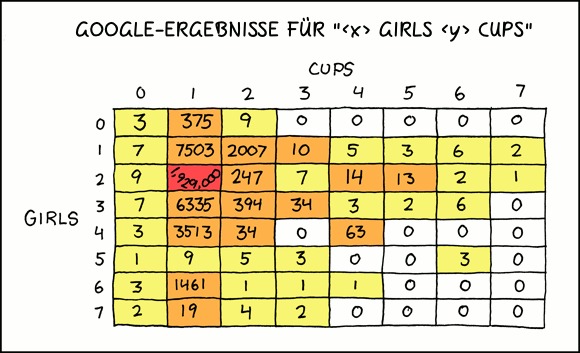 GOOGLE-ERGEBNISSE FÜR "<x> GIRLS <y> CUPS"
CUPS
0 1 2 3 4 5 6 7
0 3 375 9 0 0 0 0 0
1 7 7503 2007 10 5 3 6 2
2 9 1,929,000 247 7 14 13 2 1
3 7 6335 394 34 3 2 6 0
GIRLS
4 3 3513 34 0 63 0 0 0
5 1 9 5 3 0 0 3 0
6 3 1461 1 1 1 0 0 0
7 2 19 4 2 0 0 0 0